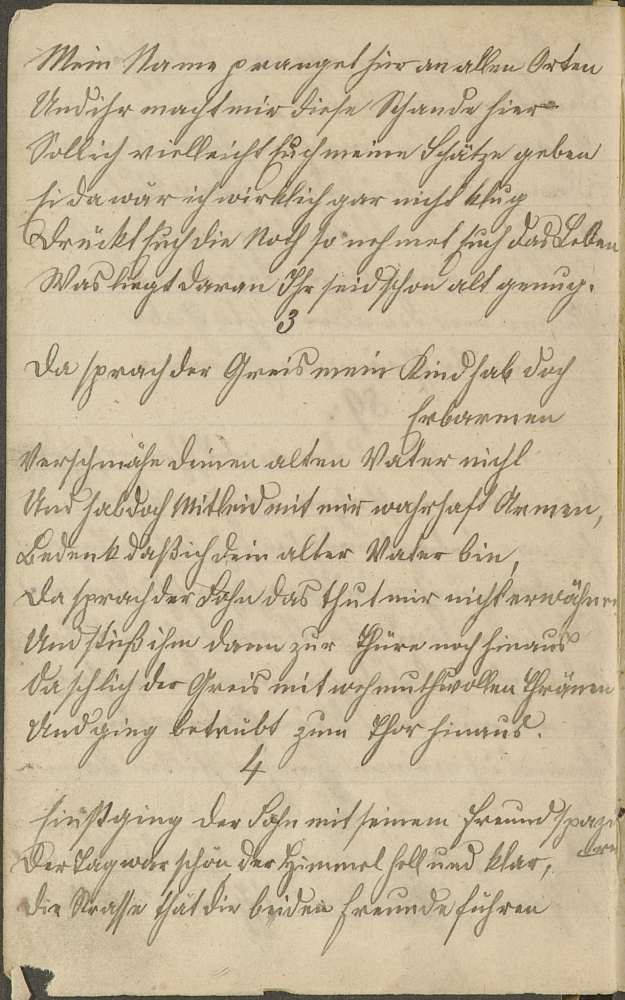 Mein Name pranget hier an allen Orten
Und ihr macht mir diese Schande hier
Soll ich vielleicht Euch meine Schätze geben
Ei da wär ich wirklich gar nicht klug
Drückt Euch die Noth so nehmet Euch das Leben
Was liegt daran Ihr seid schon alt genug.
3
Da sprach der Greis mein Kind hab doch
Erbarmen
Verschmähe deinen alten Vater nicht
Und hab doch Mitleid mit mir wahrhaft Armen,
Bedenk daß ich dein alter Vater bin,
Da sprach der Sohn das thut mir nicht erwähnen
Und stieß ihn dann zur Thüre noch hinaus
Da schlich der Greis mit wehmuthsvollen Thränen
Und ging betrübt zum Thor hinaus.
4
Einst ging der Sohn mit seinem Freund spazi
eren
Der Tag war schön, der Himmel hell und klar,
Die Strasse thät die beiden Freunde führen